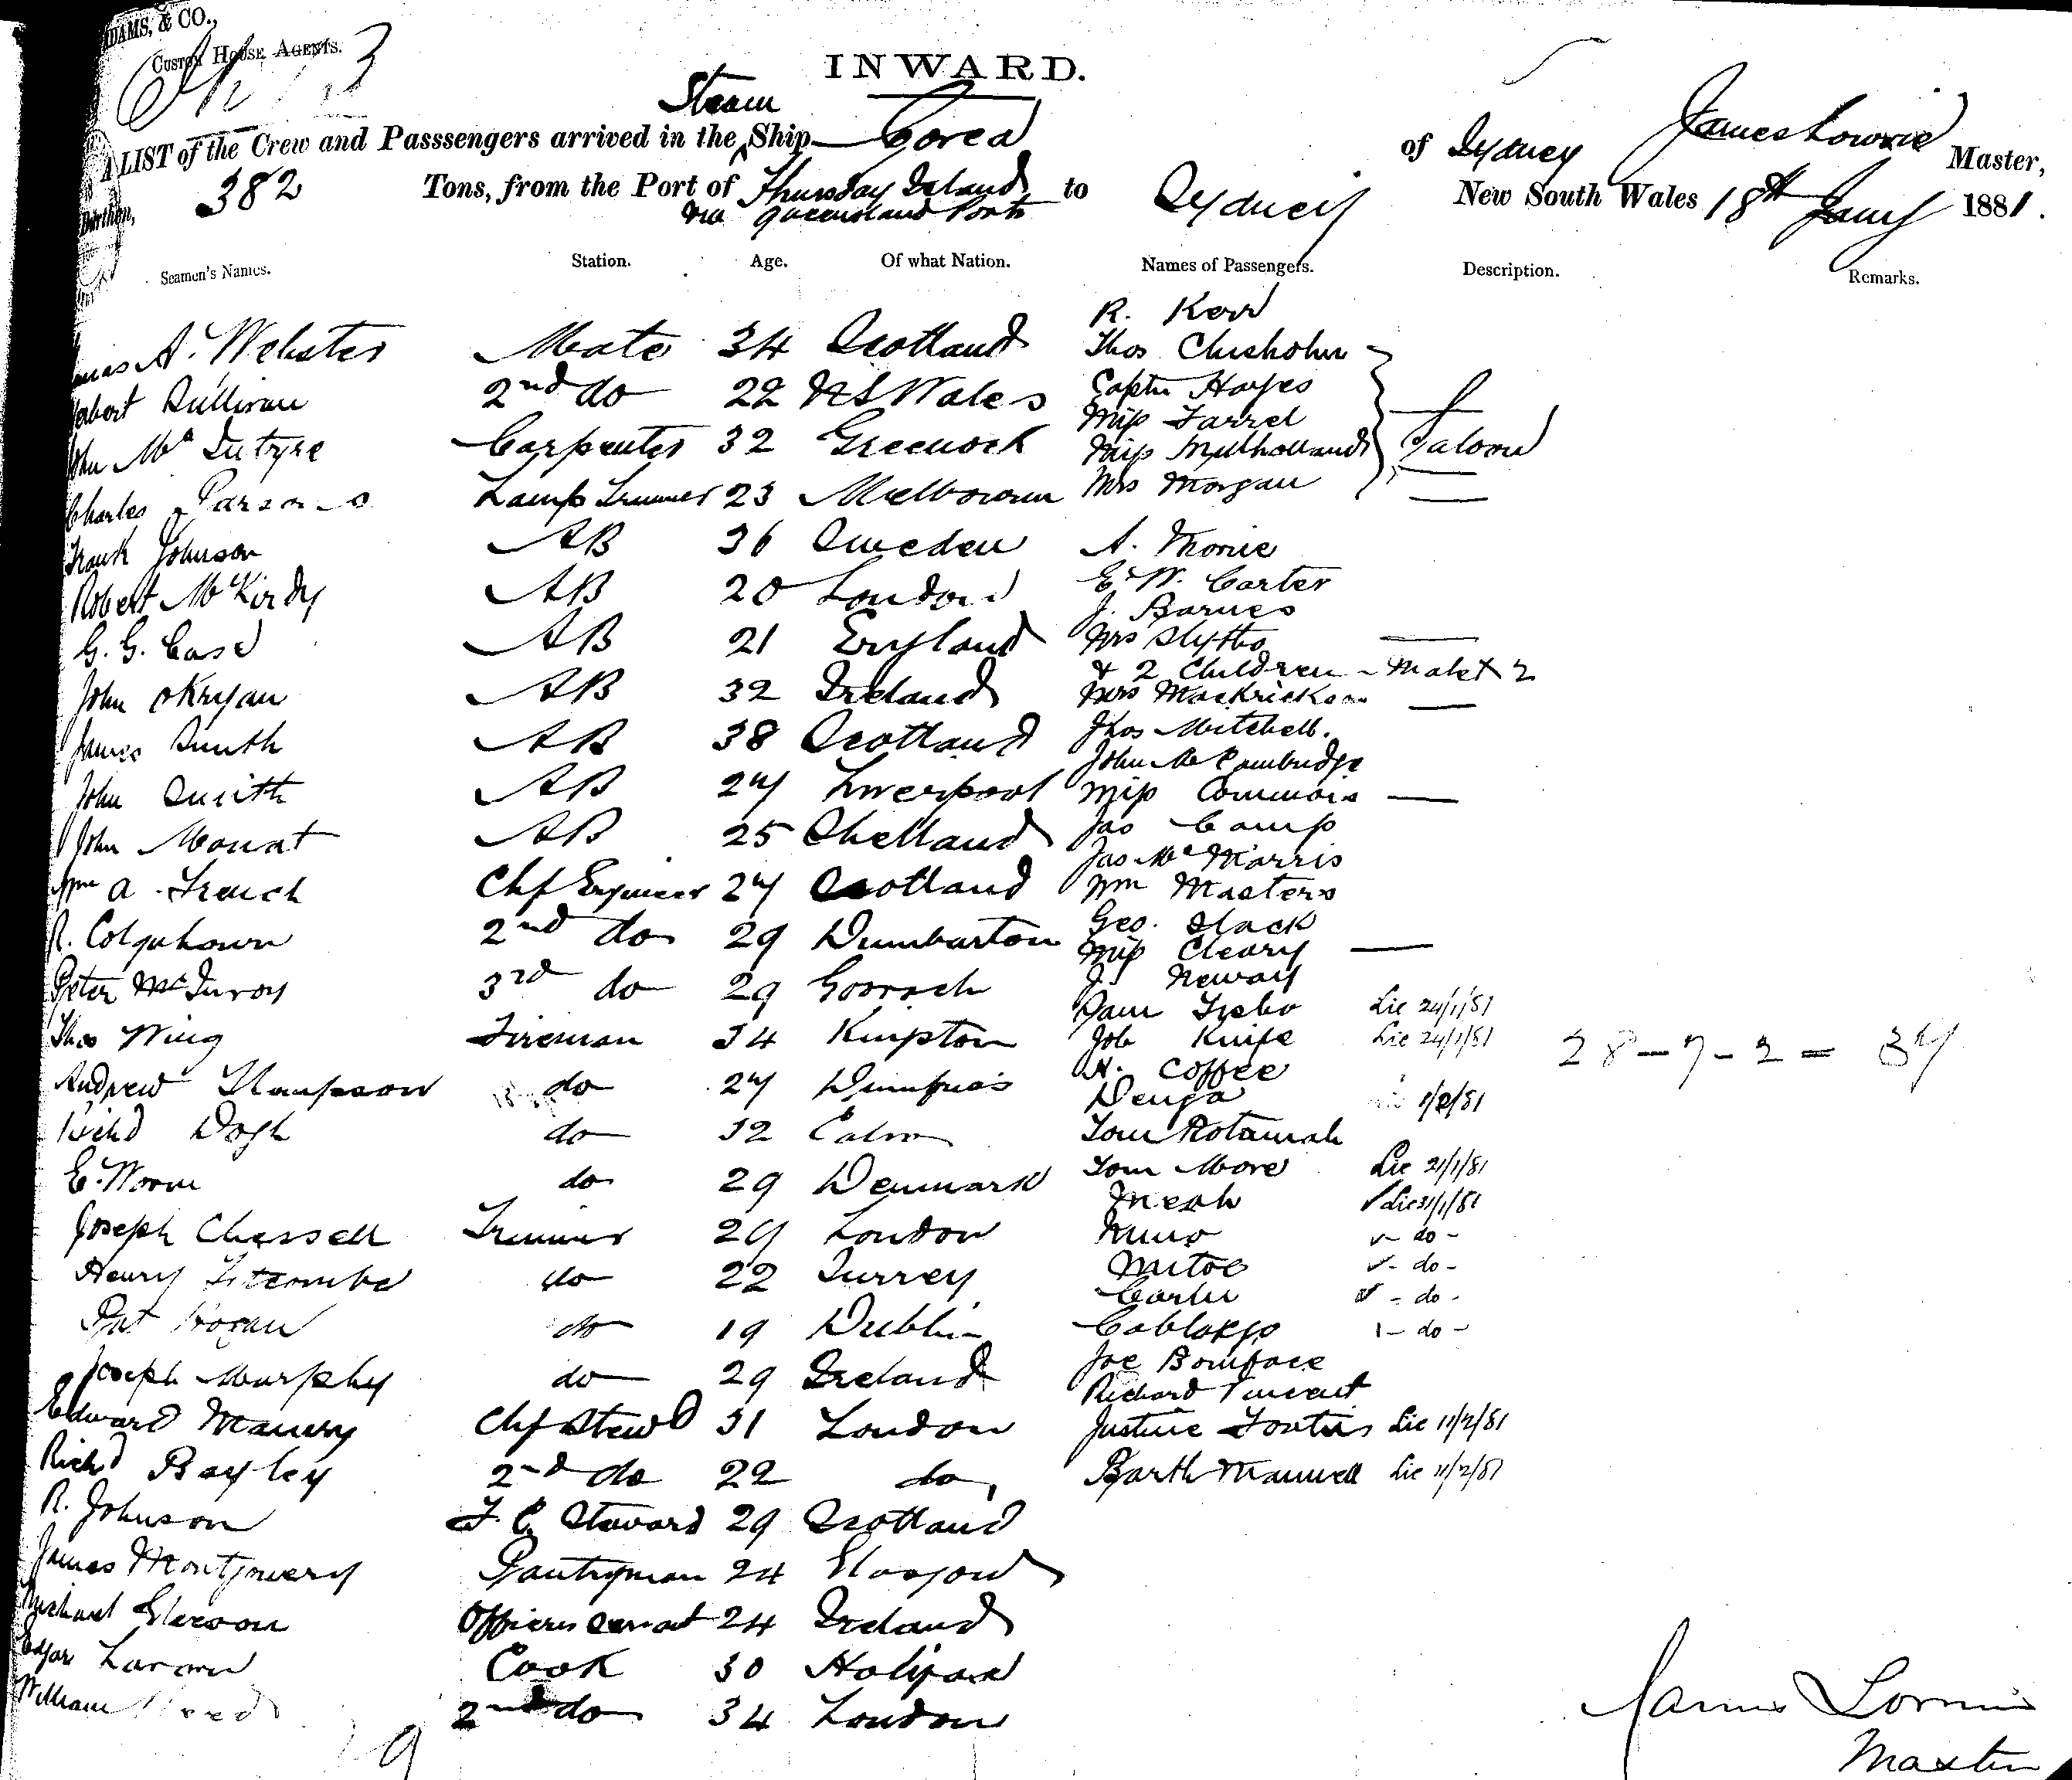 DAMS, & CO.,
CUSTOM HOUSE AGENTS.
INWARD.
Steam
A LIST of the Crew and Passsengers arrived in the Ship Corea of Sydney James Lowrie Master,
Burthen, 382 Tons, from the Port of Thursday Island to Sydney New South Wales 18th Jany 1881.
via Queensland Ports
Seamen's Names. Station. Age. Of what Nation. Names of Passengers. Description. Remarks.
R. Kerr
A. Webster Mate 34 Scotland Thos Chisholm
Sullivan 2nd do 22 N S Wales Captn Hayes
Miss Farrel
John McIntyre Carpenter 32 Greenock Miss Mulholland Saloon
Charles Parsons Lamp Trimmer 23 Melbourne Mrs Morgan
Frank Johnson AB 36 Sweden A.
Robert McKirdy AB 20 London E. W. Carter
J. Barnes
G. G. Case AB 21 England Mrs
& 2 Children
John AB 32 Ireland Mrs
James Smith AB 38 Scotland Thos Mitchell.
John McCambridge
John Smith AB 27 Liverpool Miss
John Mouat AB 25 Shetland Jas Camp
Jas Mc Morris
Wm A. French Chf Engineer 27 Scotland Wm Masters
Geo. Slack
R. Colquhoun 2nd do 29 Dumbarton Miss Cleary
Peter McInroy 3rd do 29 Goorock J. Neway
Sam Lic 24/1/81
Thos Wing Fireman 34 Job Knife Lic 24/1/81
28 - 7 - 2 = 37
H. Coffee
Andrew Thompson do 27 Dumfries Denga 1/2/81
Richd do 32 Tom Rotumah
E. Worm do 29 Denmark Tom More Lic 21/1/81
Lic 31/1/81
Joseph Chessell Trimmer 29 London - do -
Henry Titcombe do 22 Surrey - do -
- do -
Pat Hogan do 19 Dublin - do -
Joseph Murphy do 29 Ireland Joe Boniface
Richard Vincent
Edward Chf Stewd 31 London Justine Lic 11/2/81
Richd Bayley 2nd do 22 do Barth Manuell Lic 11/2/81
R. Johnson F. C. Steward 29 Scotland
James Montgomery Pantryman 24 Glasgow
Michael Gleeson Officers Servant 24 Ireland
Edgar Cook 30 Halifax
William 2nd do 34 London
James Lowrie
Master